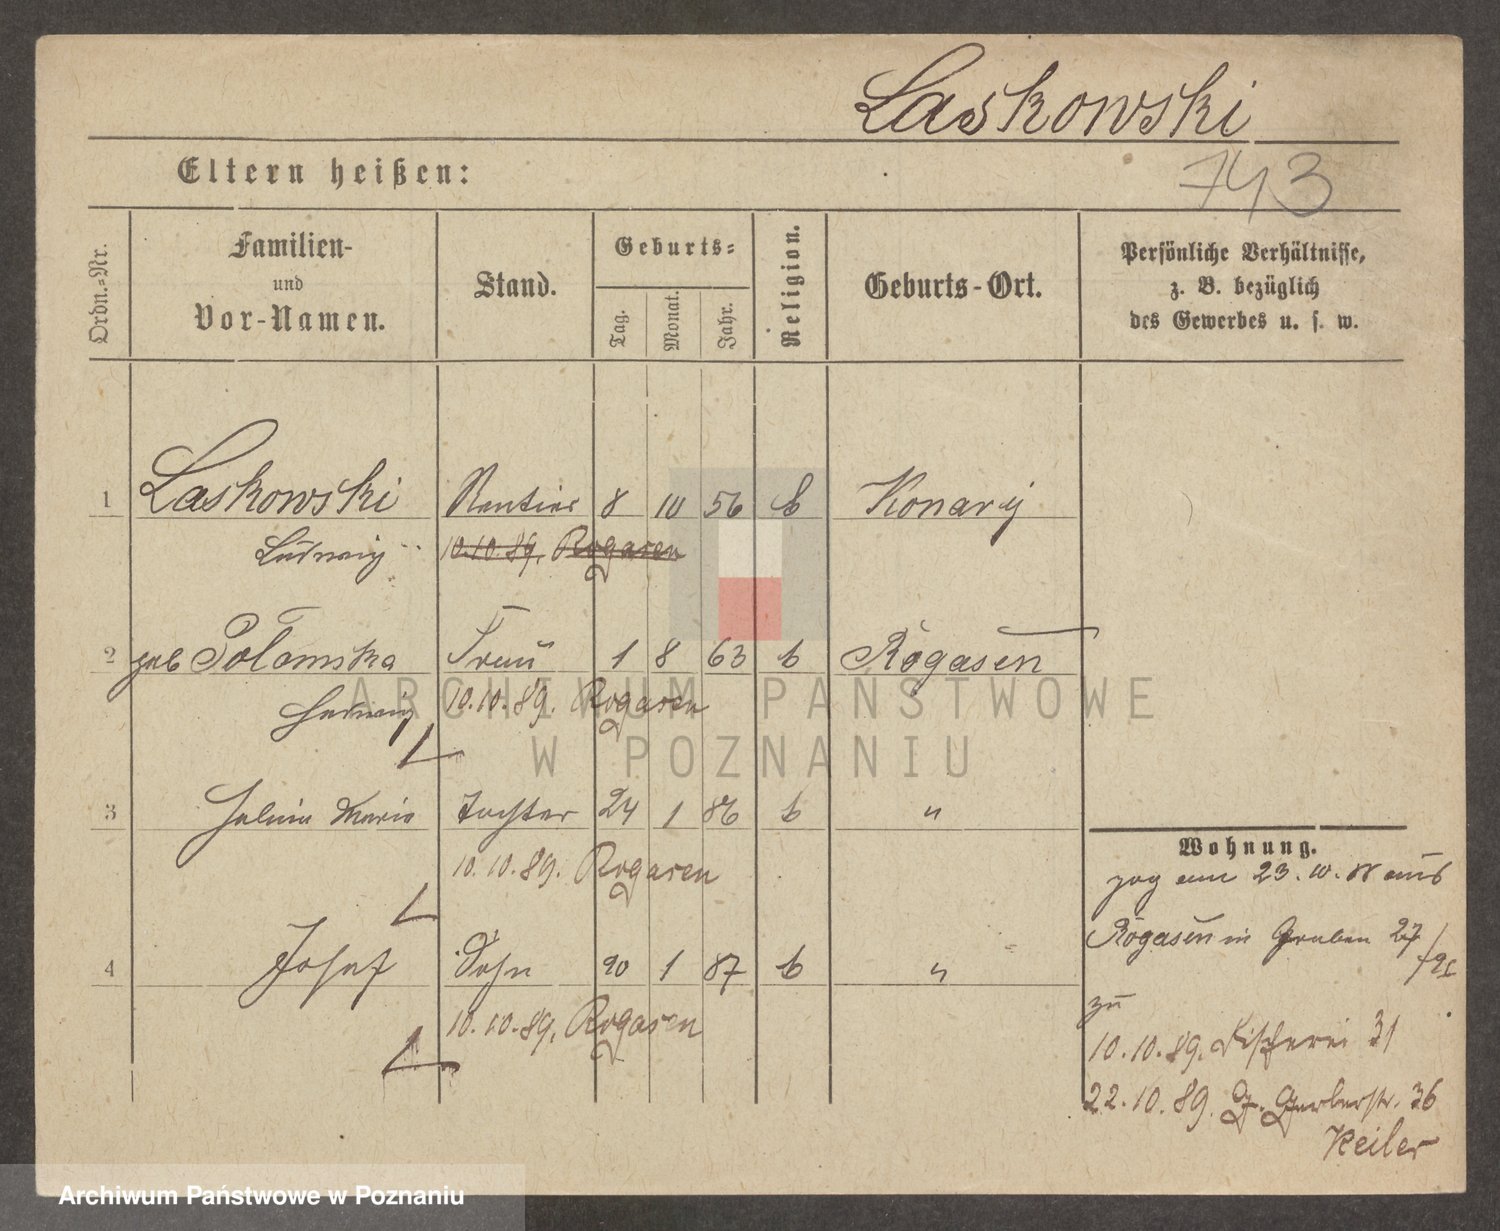 Laskowski
743
Eltern heißen:
Ordn.-Nr.
Familien-
und
Vor-Namen.
Stand.
Geburts-
Tag.
Monat.
Jahr.
Religion.
Geburts-Ort.
Persönliche Verhältnisse,
z. B. bezüglich
des Gewerbes u. s. w.
1 Laskowski Rentier 8 10 56 k Konary
Ludwig 10.10.89. Rogasen
2 geb Polomska Frau 1 8 63 k Rogasen
Hedwig 10.10.89. Rogasen
3 Marie Tochter 24 1 86 k "
10.10.89. Rogasen
4 Josef Sohn 20 1 87 k "
10.10.89. Rogasen
Wohnung.
zog am 23.10.88 aus
Rogasen in Graben 27
zu
10.10.89. Fischerei 31
22.10.89. Gr. Gerberstr. 36
Keiler
ARCHIWUM PAŃSTWOWE
W POZNANIU
Archiwum Państwowe w Poznaniu